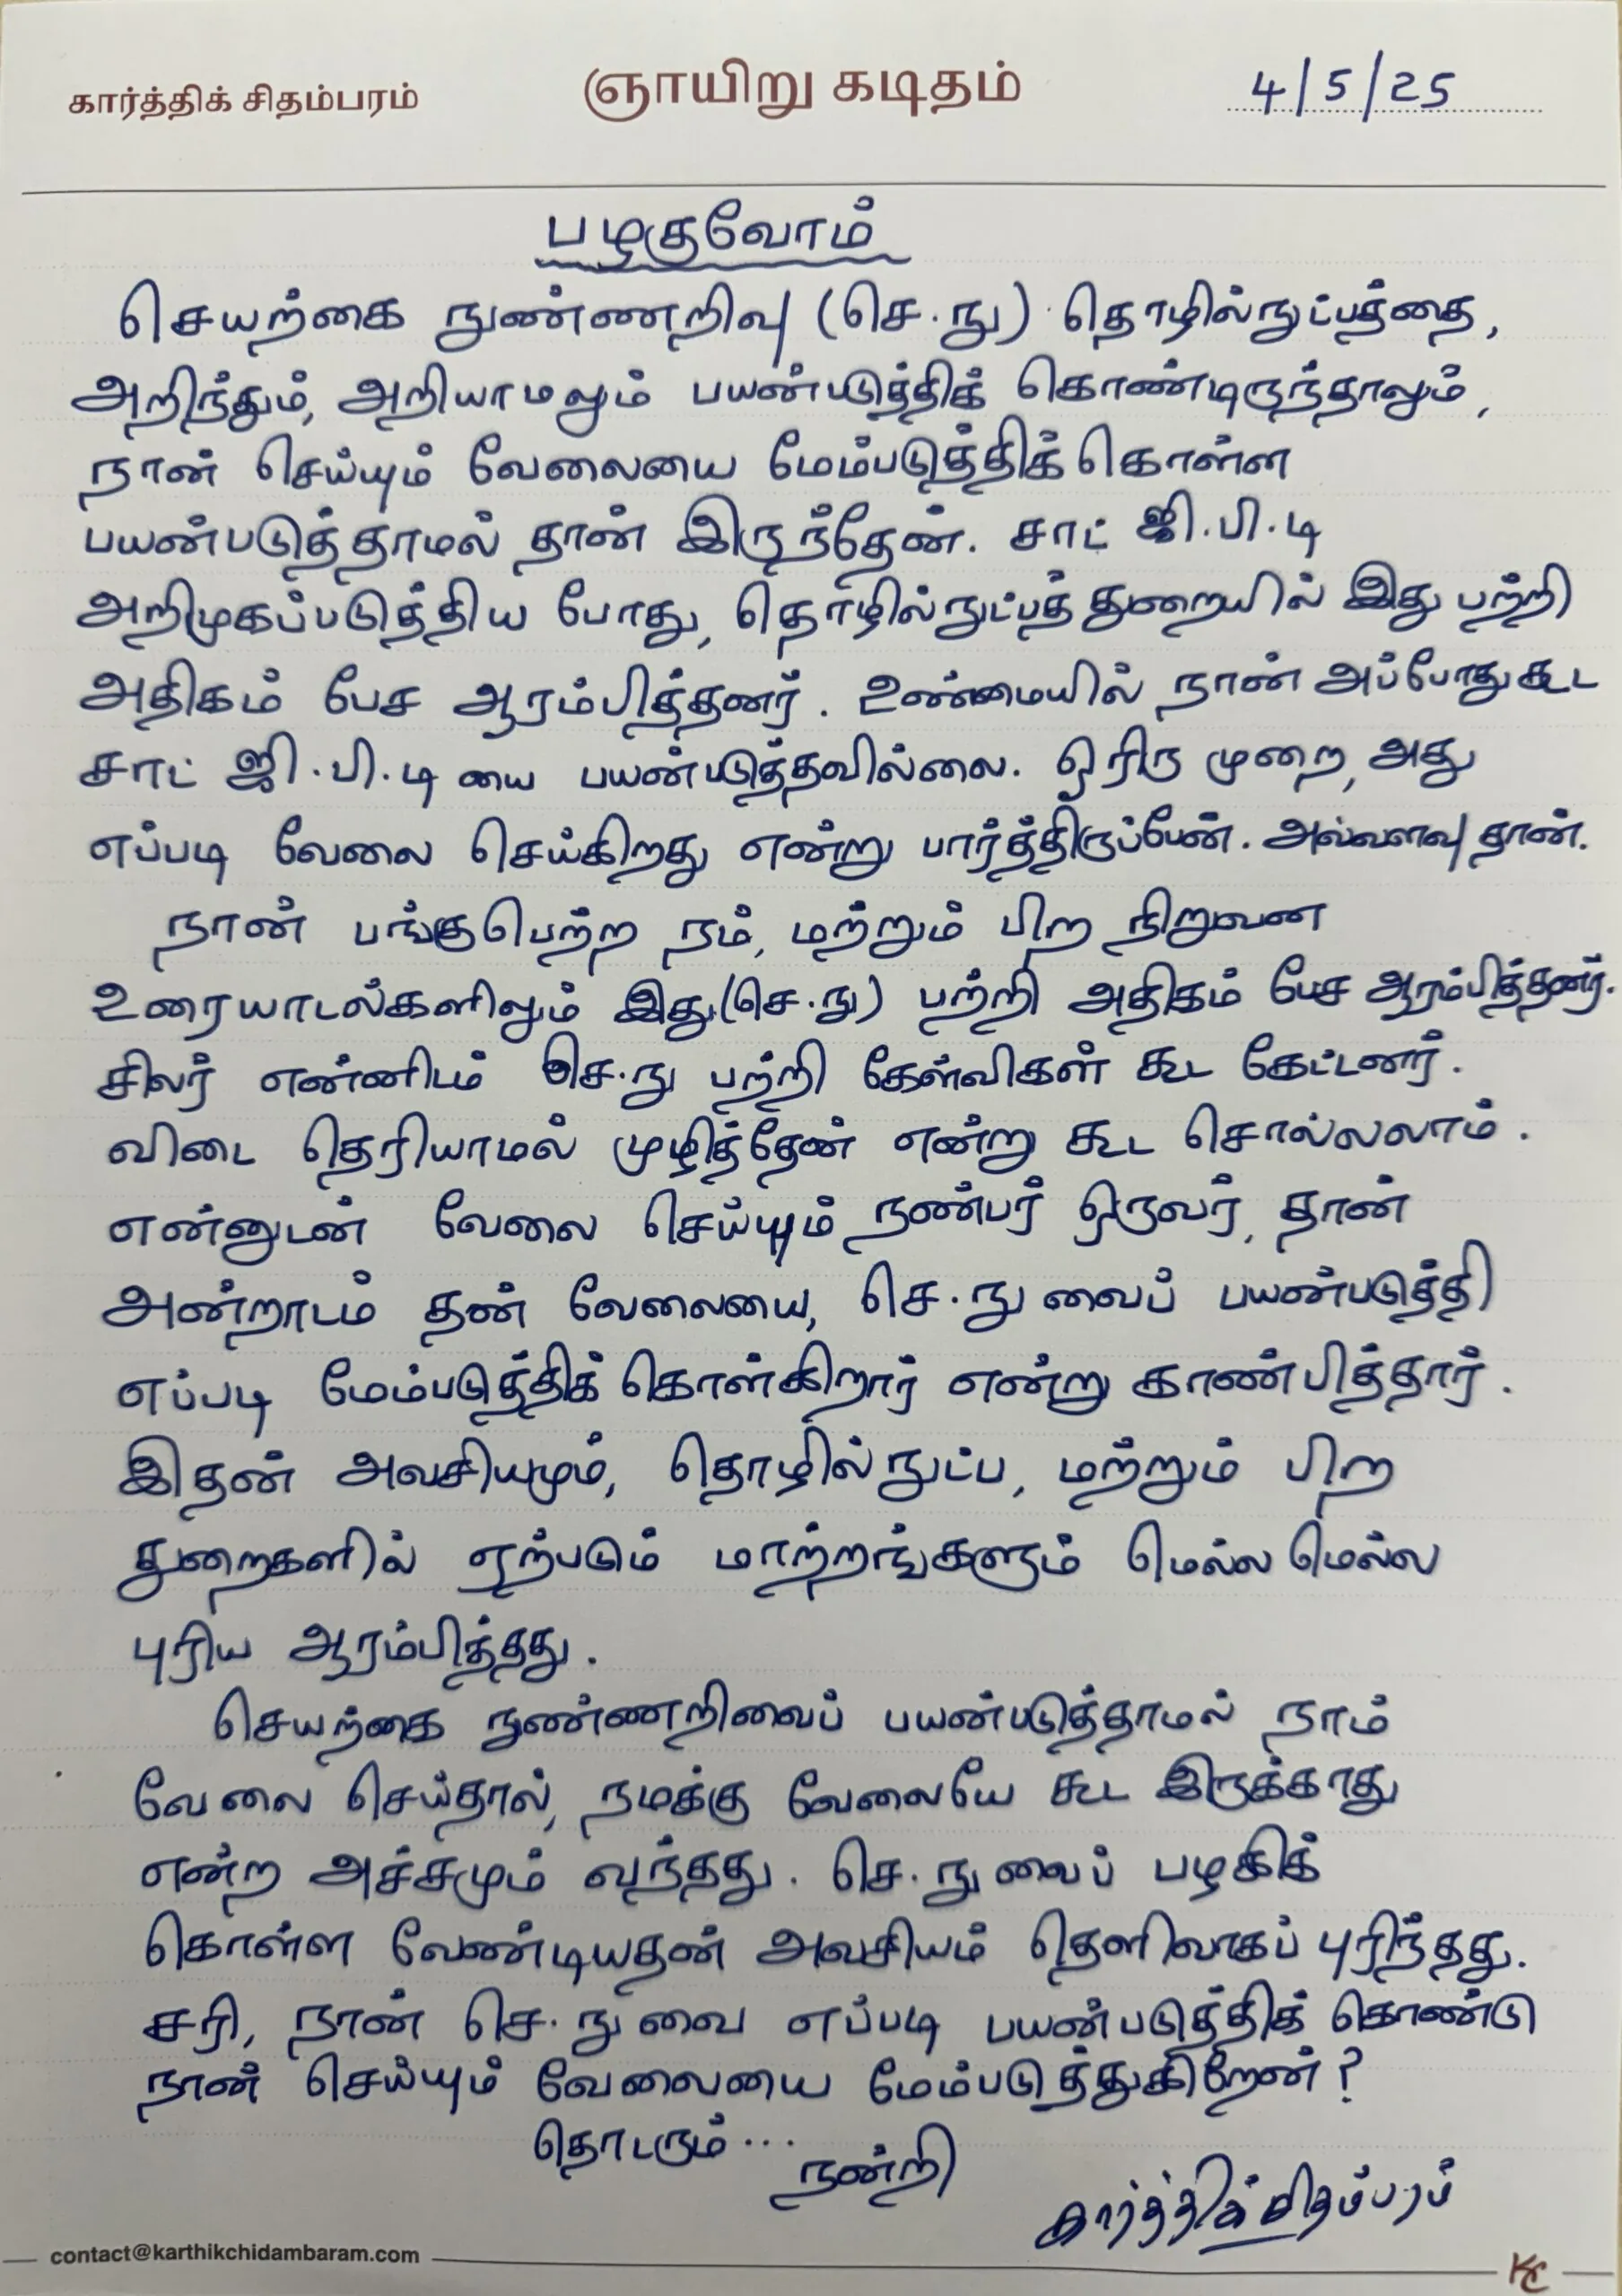 கார்த்திக் சிதம்பரம்
ஞாயிறு கடிதம்
4/5/25
பழகுவோம்
செயற்கை நுண்ணறிவு (செ.நு) தொழில்நுட்பத்தை,
அறிந்தும், அறியாமலும் பயன்படுத்திக் கொண்டிருந்தாலும்,
நான் செய்யும் வேலையை மேம்படுத்திக் கொள்ள
பயன்படுத்தாமல் தான் இருந்தேன். சாட் ஜி.பி.டி
அறிமுகப்படுத்திய போது, தொழில்நுட்பத் துறையில் இது பற்றி
அதிகம் பேச ஆரம்பித்தனர். உண்மையில் நான் அப்போது கூட
சாட் ஜி.பி.டி யை பயன்படுத்தவில்லை. ஓரிரு முறை, அது
எப்படி வேலை செய்கிறது என்று பார்த்திருப்பேன். அவ்வளவு தான்.
நான் பங்குபெற்ற நம், மற்றும் பிற நிறுவன
உரையாடல்களிலும் இது (செ.நு) பற்றி அதிகம் பேச ஆரம்பித்தனர்.
சிலர் என்னிடம் செ.நு பற்றி கேள்விகள் கூட கேட்டனர்.
விடை தெரியாமல் முழித்தேன் என்று கூட சொல்லலாம்.
என்னுடன் வேலை செய்யும் நண்பர் ஒருவர், தான்
அன்றாடம் தன் வேலையை, செ.நு வைப் பயன்படுத்தி
எப்படி மேம்படுத்திக் கொள்கிறார் என்று காண்பித்தார்.
இதன் அவசியமும், தொழில்நுட்ப, மற்றும் பிற
துறைகளில் ஏற்படும் மாற்றங்களும் மெல்ல மெல்ல
புரிய ஆரம்பித்தது.
செயற்கை நுண்ணறிவைப் பயன்படுத்தாமல் நாம்
வேலை செய்தால், நமக்கு வேலையே கூட இருக்காது
என்ற அச்சமும் வந்தது. செ.நு வைப் பழகிக்
கொள்ள வேண்டியதன் அவசியம் தெளிவாகப் புரிந்தது.
சரி, நான் செ.நு வை எப்படி பயன்படுத்திக் கொண்டு
நான் செய்யும் வேலையை மேம்படுத்துகிறேன்?
தொடரும்...
நன்றி
கார்த்திக் சிதம்பரம்
contact@karthikchidambaram.com
KC